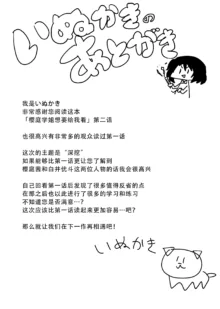 いぬかきの
あとがき
我是いぬかき
非常感谢您阅读这本
「樱庭学姐想要给我看」第二话
也很高兴有非常多的观众读过第一话
这次的主题是“深挖”
如果能够比第一话更让您了解到
樱庭薇和白井优斗这两位人物的话我会很高兴
自己回看第一话后发现了很多值得反省的点
在那之后也以此进行了很多的学习和练习
不知道您是否满意…？
这次应该比第一话读起来更加容易…吧？
那么就让我们在下一作再相遇吧！
いぬかき